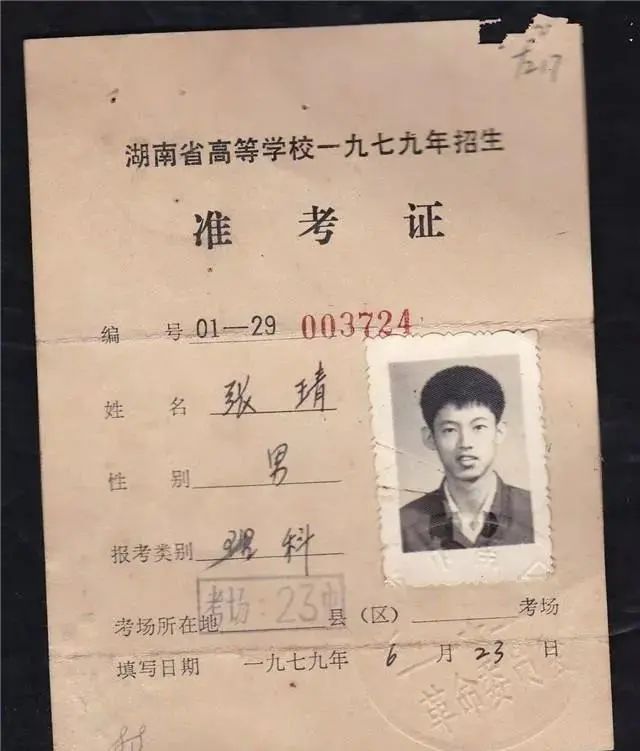 湖南省高等学校一九七九年招生
准考证
编 号 01—29 003724
姓 名 张 琦
性 别 男
报考类别 理科
考场:23
考场所在地 县(区) 考场
填写日期 一九七九年 6 月 23 日
革命委员会